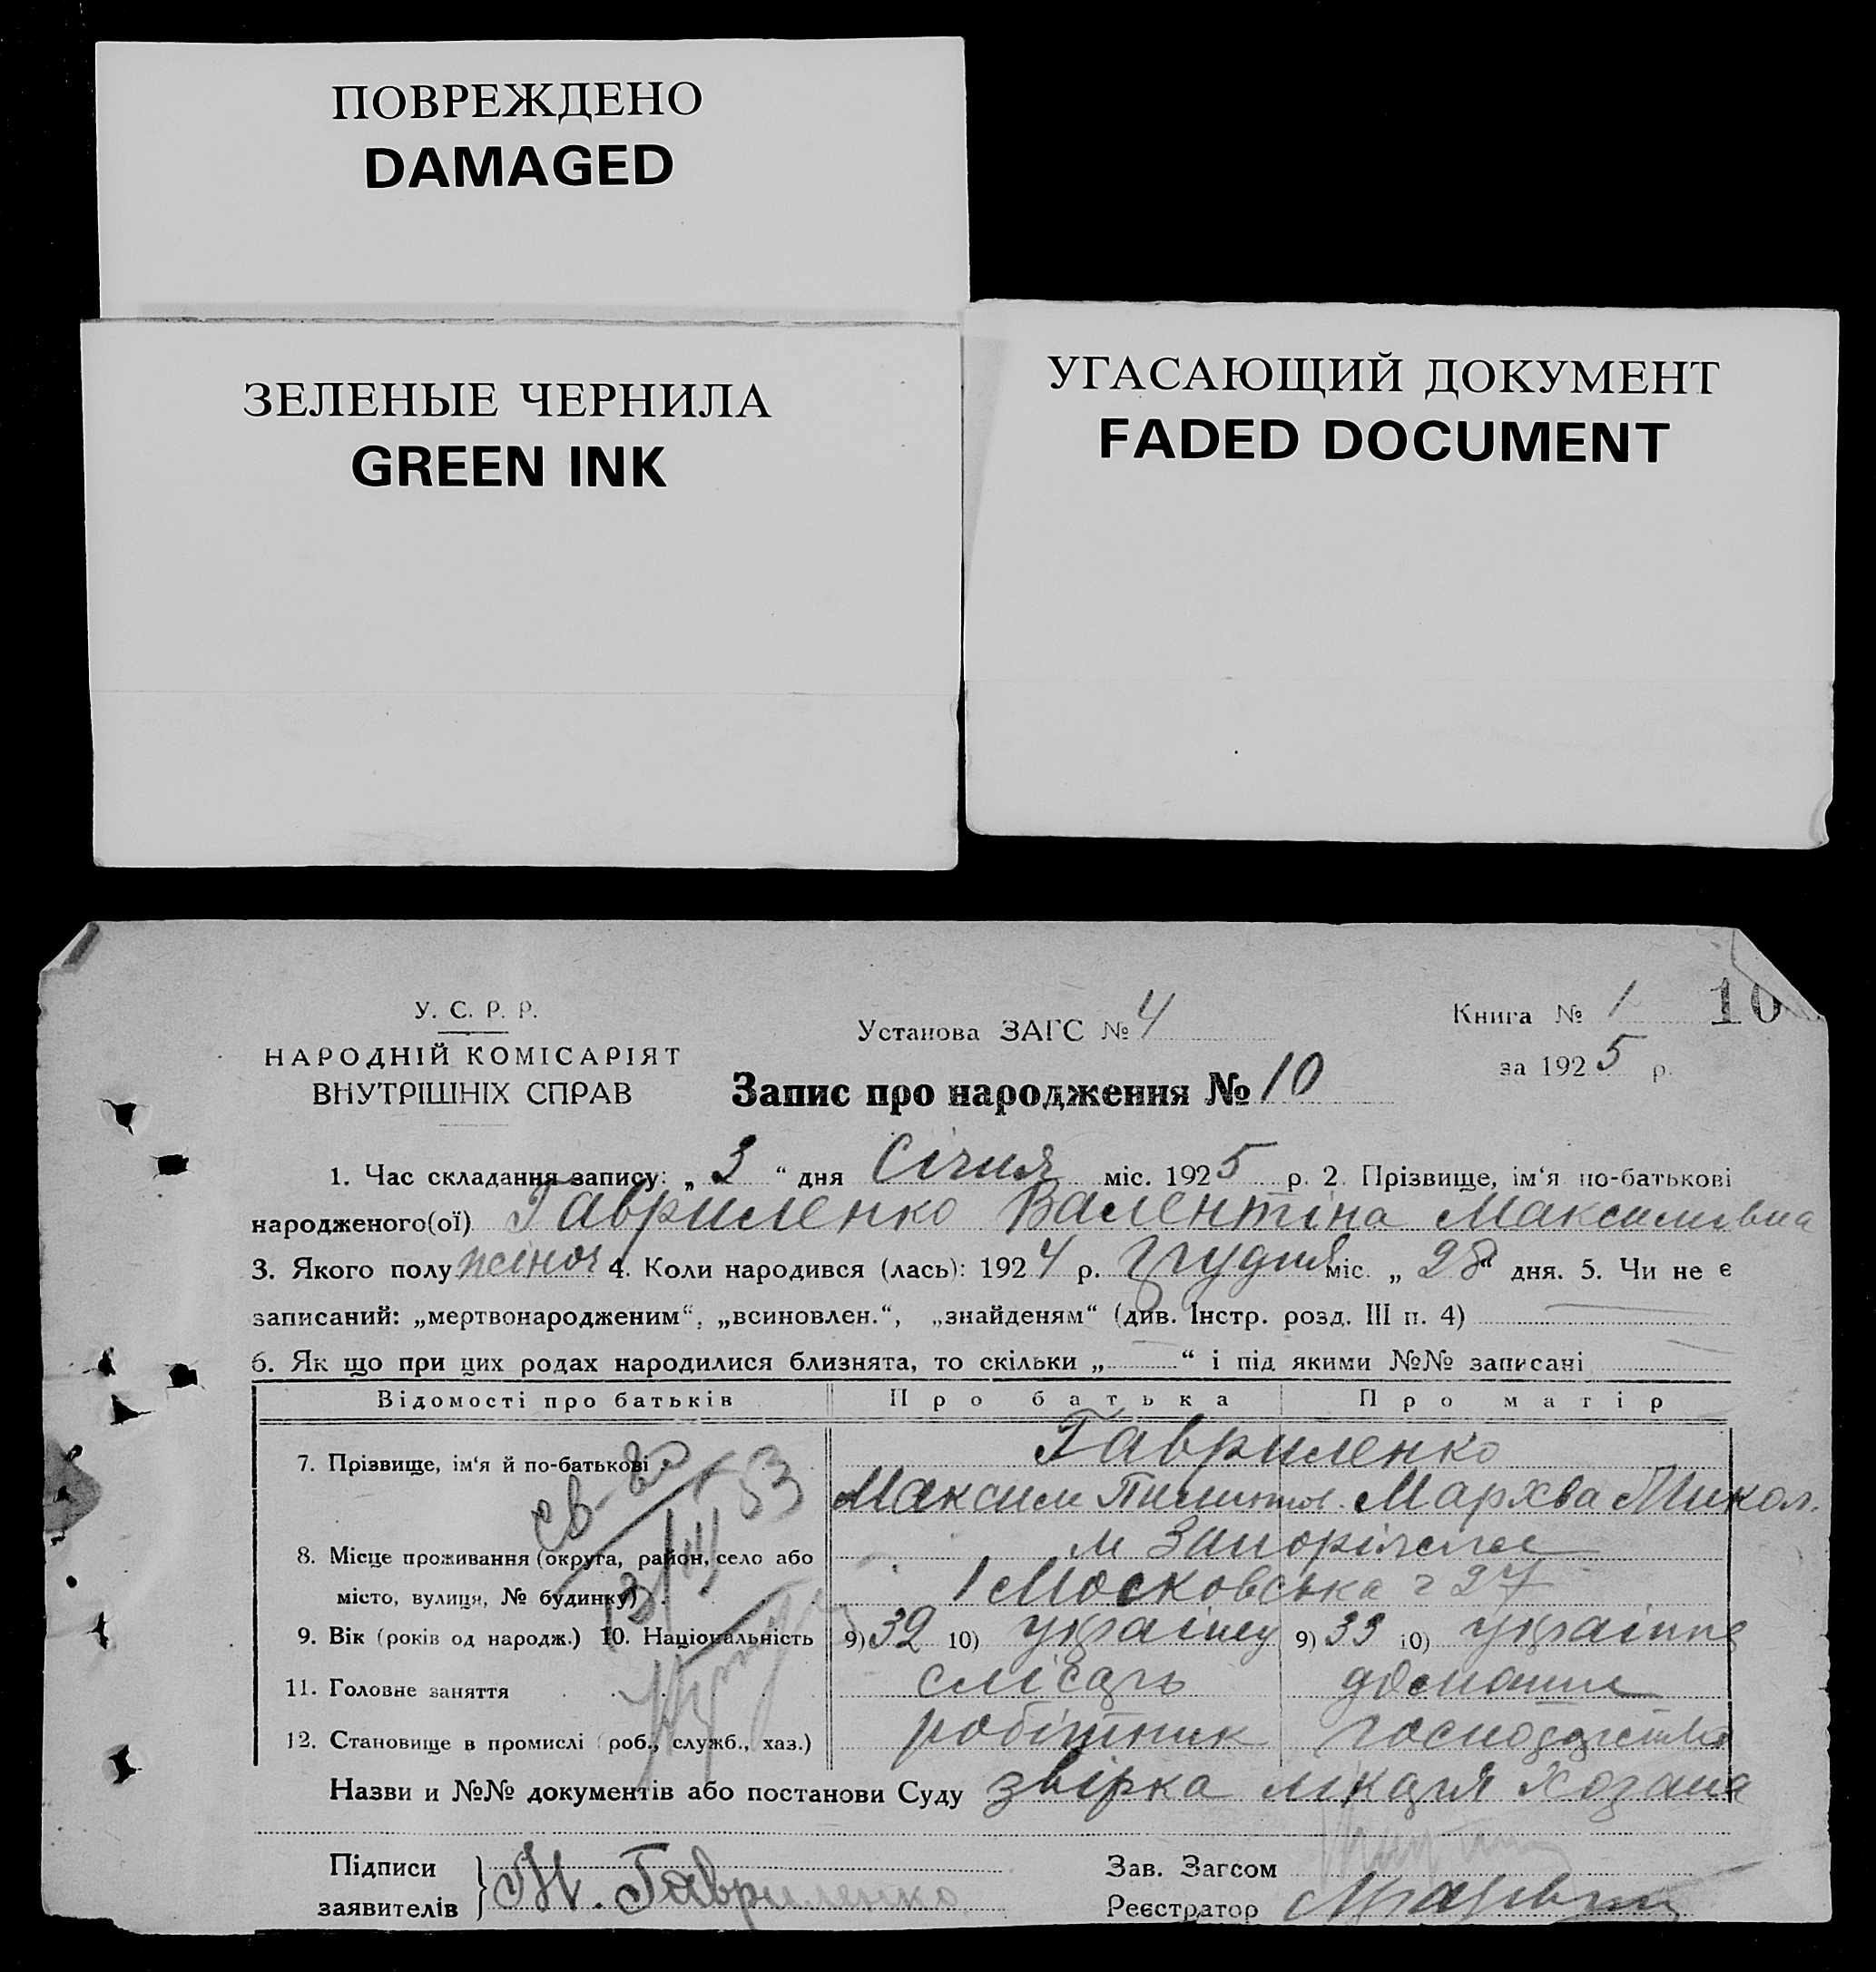 ПОВРЕЖДЕНО
DAMAGED
ЗЕЛЕНЫЕ ЧЕРНИЛА
GREEN INK
УГАСАЮЩИЙ ДОКУМЕНТ
FADED DOCUMENT
У. С. Р. Р.
НАРОДНІЙ КОМІСАРІЯТ
ВНУТРІШНІХ СПРАВ
Установа ЗАГС № 4
Книга № 1 10
за 1925 р.
Запис про народження № 10
1. Час складання запису: „ 3 “ дня Січня міс. 1925 р. 2. Прізвище, ім‘я по-батькові
народженого(ої) Гавриленко Валентіна Максимівна
3. Якого полу жіноч 4. Коли народився (лась): 1924 р. Грудня міс. „ 28 “ дня. 5. Чи не є
записаний: „мертвонародженим“, „всиновлен.“, „знайденям“ (див. Інстр. розд. III п. 4)
6. Як що при цих родах народилися близнята, то скільки „ “ і під якими №№ записані
Відомості про батьків Про батька Про матір
7. Прізвище, ім‘я й по-батькові Гавриленко
Максим Мархва Микол.
8. Місце проживання (округа, район, село або м Запоріжже
місто, вулиця, № будинку) Московська 27
9. Вік (років од народж.) 10. Національність 9) 32 10) 9) 33 10)
11. Головне заняття слісарь домашнє
12. Становище в промислі (роб., служб., хаз.) робітник
Назви и №№ документів або постанови Суду звірка лікаря
Підписи
заявителів Гавриленко
Зав. Загсом
Реєстратор